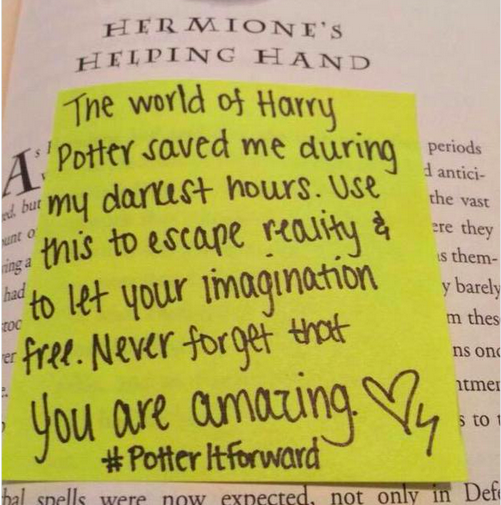 HERMIONE'S
HELPING HAND
The world of Harry
Potter saved me during
my darkest hours. Use
this to escape reality &
to let your imagination
free. Never forget that
you are amazing.
#PotterItForward
periods
antici-
the vast
they
them-
barely
bal spells were now expected, not only in Defe